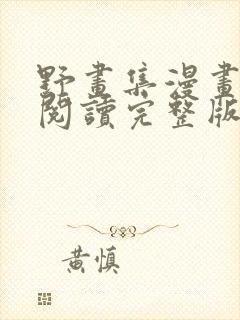 野畫集漫畫
閱讀完整版
黃慎